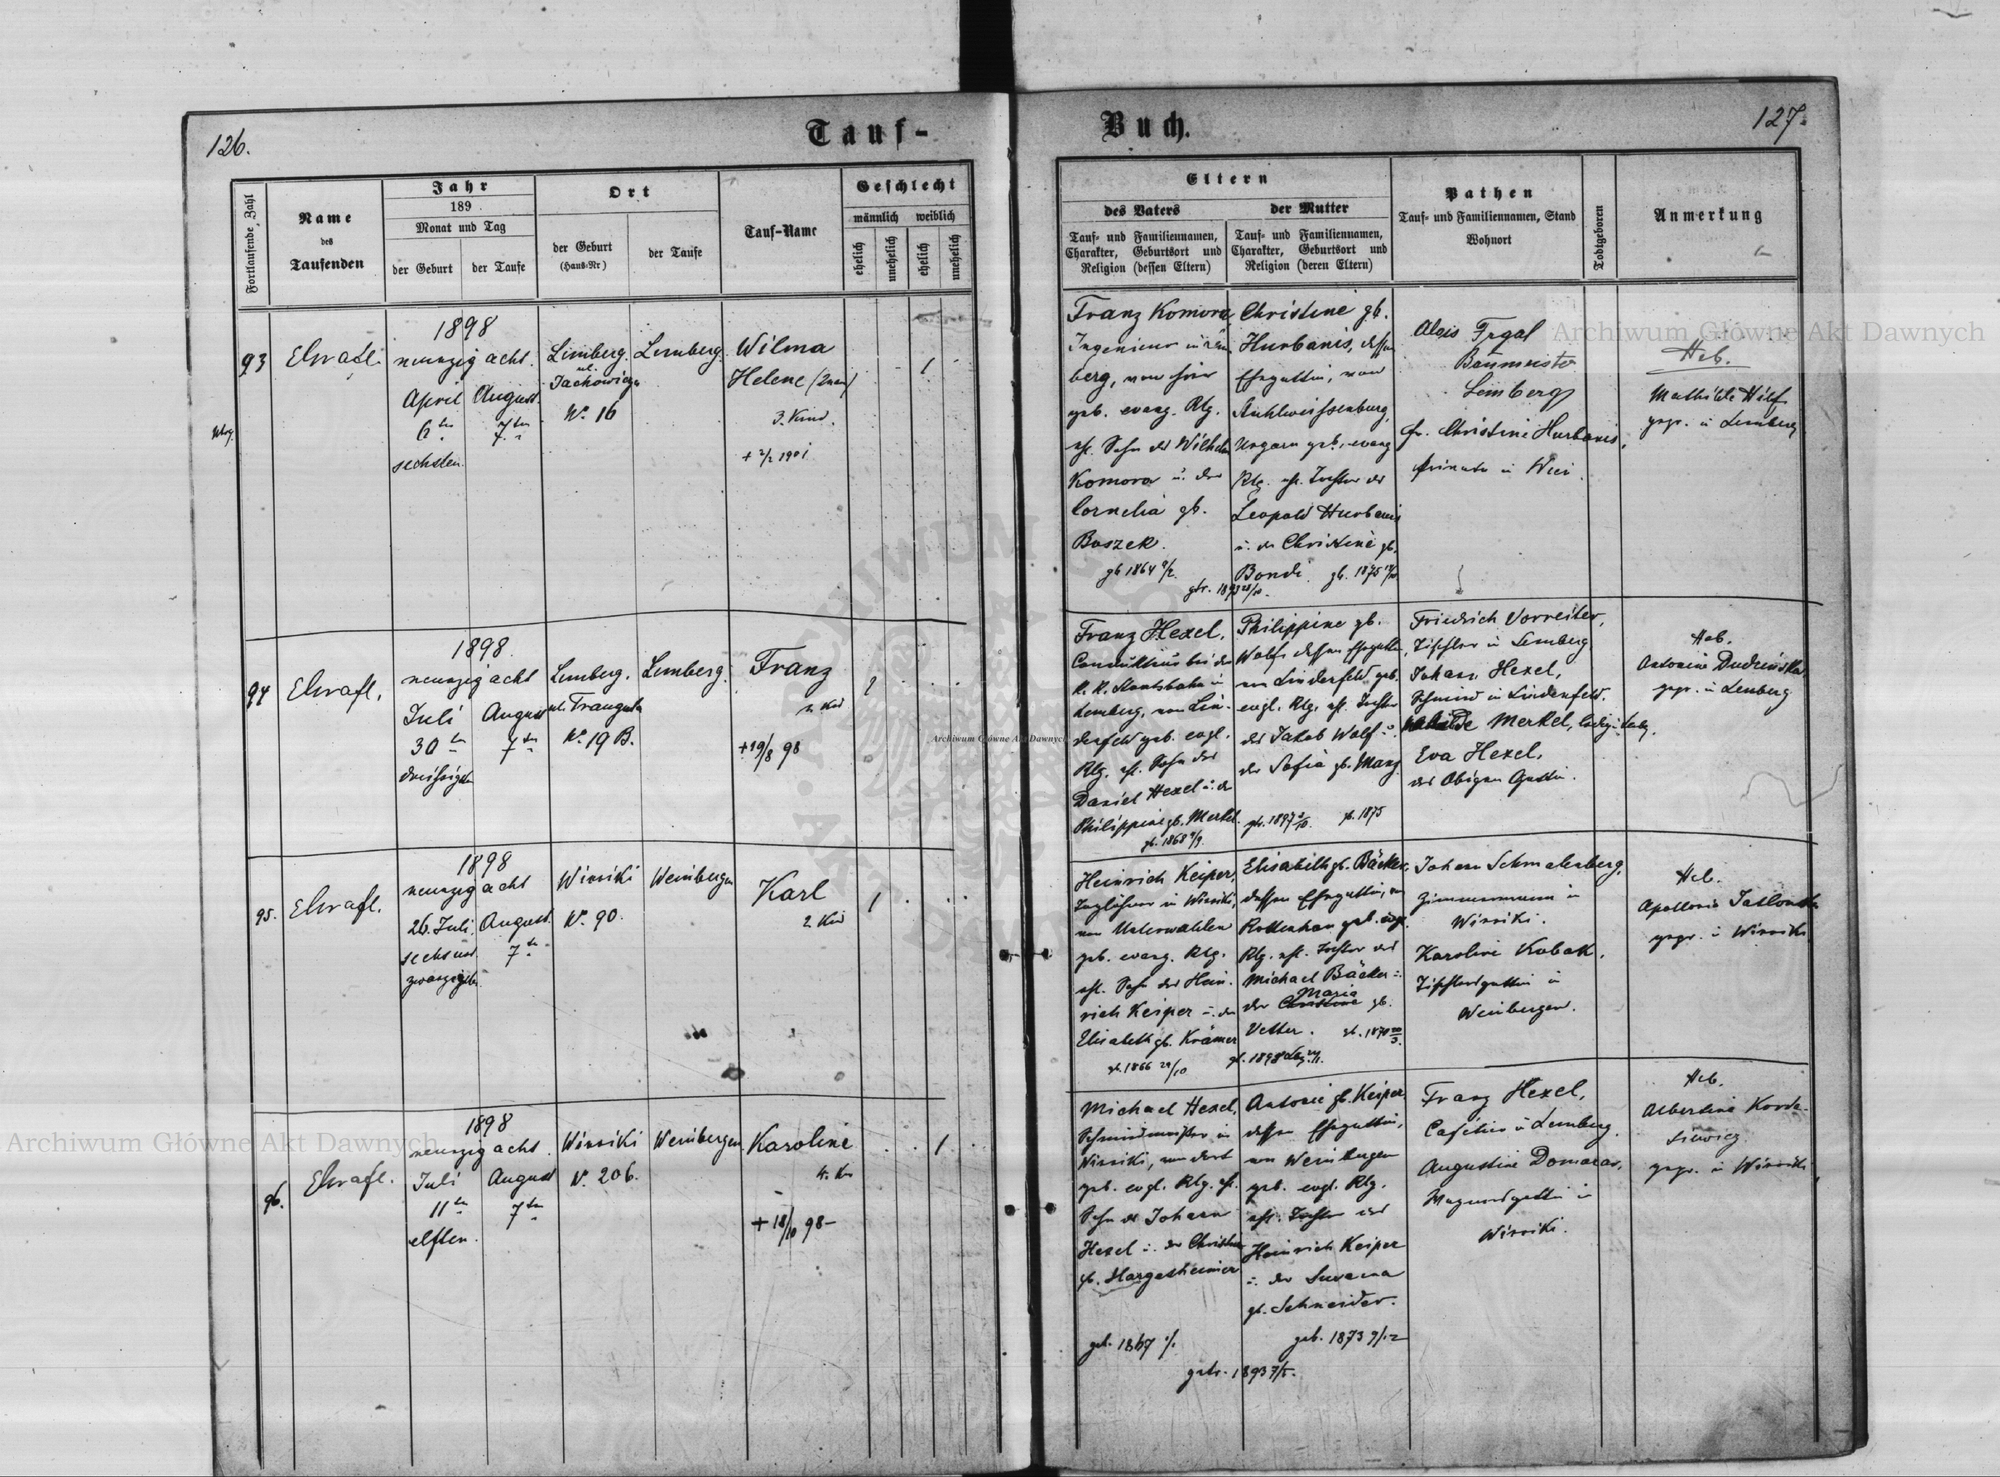 126.
Tauf-
Fortlaufende Zahl
Name
des
Taufenden
Jahr
189
Monat und Tag
der Geburt
der Taufe
Ort
der Geburt
(Haus-Nr)
der Taufe
Tauf-Name
Geschlecht
männlich weiblich
ehelich
unehelich
ehelich
unehelich
93
1898
neunzig acht
April August
6ten 7ten
sechsten
Lemberg
ul.
No 16
Lemberg
Wilma
Helene
3. Kind.
+ 2/2 1901
94
1898.
neunzig acht
Juli August
30ten 7ten
dreissigsten
Lemberg.
No 19 B.
Lemberg.
Franz
2. Kind
+19/8 98
95.
1898
neunzig acht
26. Juli August
sechsund 7ten
zwanzigsten
Winniki
No 90.
Weinbergen
Karl
2. Kind
96.
1898
neunzig acht.
Juli August
11ten 7ten
elften.
Winniki
N. 206.
Weinbergen
Karoline
4. Kin
+ 18/10 98-
Buch.
127.
Eltern
des Vaters
Tauf- und Familiennamen,
Charakter, Geburtsort und
Religion (dessen Eltern)
der Mutter
Tauf- und Familiennamen,
Charakter, Geburtsort und
Religion (deren Eltern)
Pathen
Tauf- und Familiennamen, Stand
Wohnort
Todtgeboren
Anmerkung
Franz Komora
Ingenieur in Lem
berg, von hier
geb. evang. Rlg.
ehl. Sohn des Wilhelm
Komora u. der
Cornelia gb.
Boszek.
gb 1864
Christine gb.
Hurbanis, dessen
Ehegattin, von
Stuhlweissenburg,
Ungarn geb. evang
Rlg. ehl. Tochter des
Leopold Hurbanis
u. der Christine gb.
Bondi. gb. 1875
gtr. 1893
Alois Frgal
Baumeister
Lemberg
Fr. Christine Hurbanis,
Private in Wien.
Heb.
Mathilde Hilf
gepr. in Lemberg
Franz Hexel,
Conducteur bei der
K. K. Staatsbahn in
Lemberg, von Lin-
denfeld geb. evgl.
Rlg. ehl. Sohn des
Daniel Hexel u. der
Philippine gb. Merkel.
gb. 1868
Philippine gb.
Wolf dessen Ehegattin
von Lindenfeld geb.
evgl. Rlg. ehl. Tochter
des Jakob Wolf u.
der Sofia gb. Manz
gtr. 1897 gb. 1875
Friedrich Vorreiter,
Tischler in Lemberg
Johann Hexel,
Schmied in Lindenfeld.
Merkel, ledig
Eva Hexel,
des Obigen Gattin.
Heb.
Antonine Dudzińska
gepr. in Lemberg
Heinrich Keiper,
Zugführer in Winniki,
von Unterwalden
geb. evang. Rlg.
ehl. Sohn des Hein-
rich Keiper u. der
Elisabeth gb. Krämer
gb. 1866 29/10
Elisabeth gb. Bäcker,
dessen Ehegattin, von
Rottenhan geb. evgl.
Rlg. ehl. Tochter des
Michael Bäcker u.
Maria
der Christine gb.
Vetter.
Johann Schmalenberg,
Zimmermann in
Winniki.
Karoline Kobak,
Tischlersgattin in
Weinbergen.
Heb.
Apollonia
gepr. in Winniki
Michael Hexel,
Schmiedmeister in
Winniki, von dort
geb. evgl. Rlg. ehl.
Sohn des Johann
Hexel u. der Christine
gb. Hargesheimer
geb. 1867
Antonie gb. Keiper
dessen Ehegattin,
von Weinbergen
geb. evgl. Rlg.
ehl. Tochter des
Heinrich Keiper
u. der Susanna
gb. Schneider.
geb. 1873 9/12
getr. 1893 7/5.
Franz Hexel,
Cafetier in Lemberg.
Augustine
in
Winniki.
Heb.
Albertine
gepr. in Winniki
Archiwum Główne Akt Dawnych
Archiwum Główne Akt Dawnych
Archiwum Główne Akt Dawnych